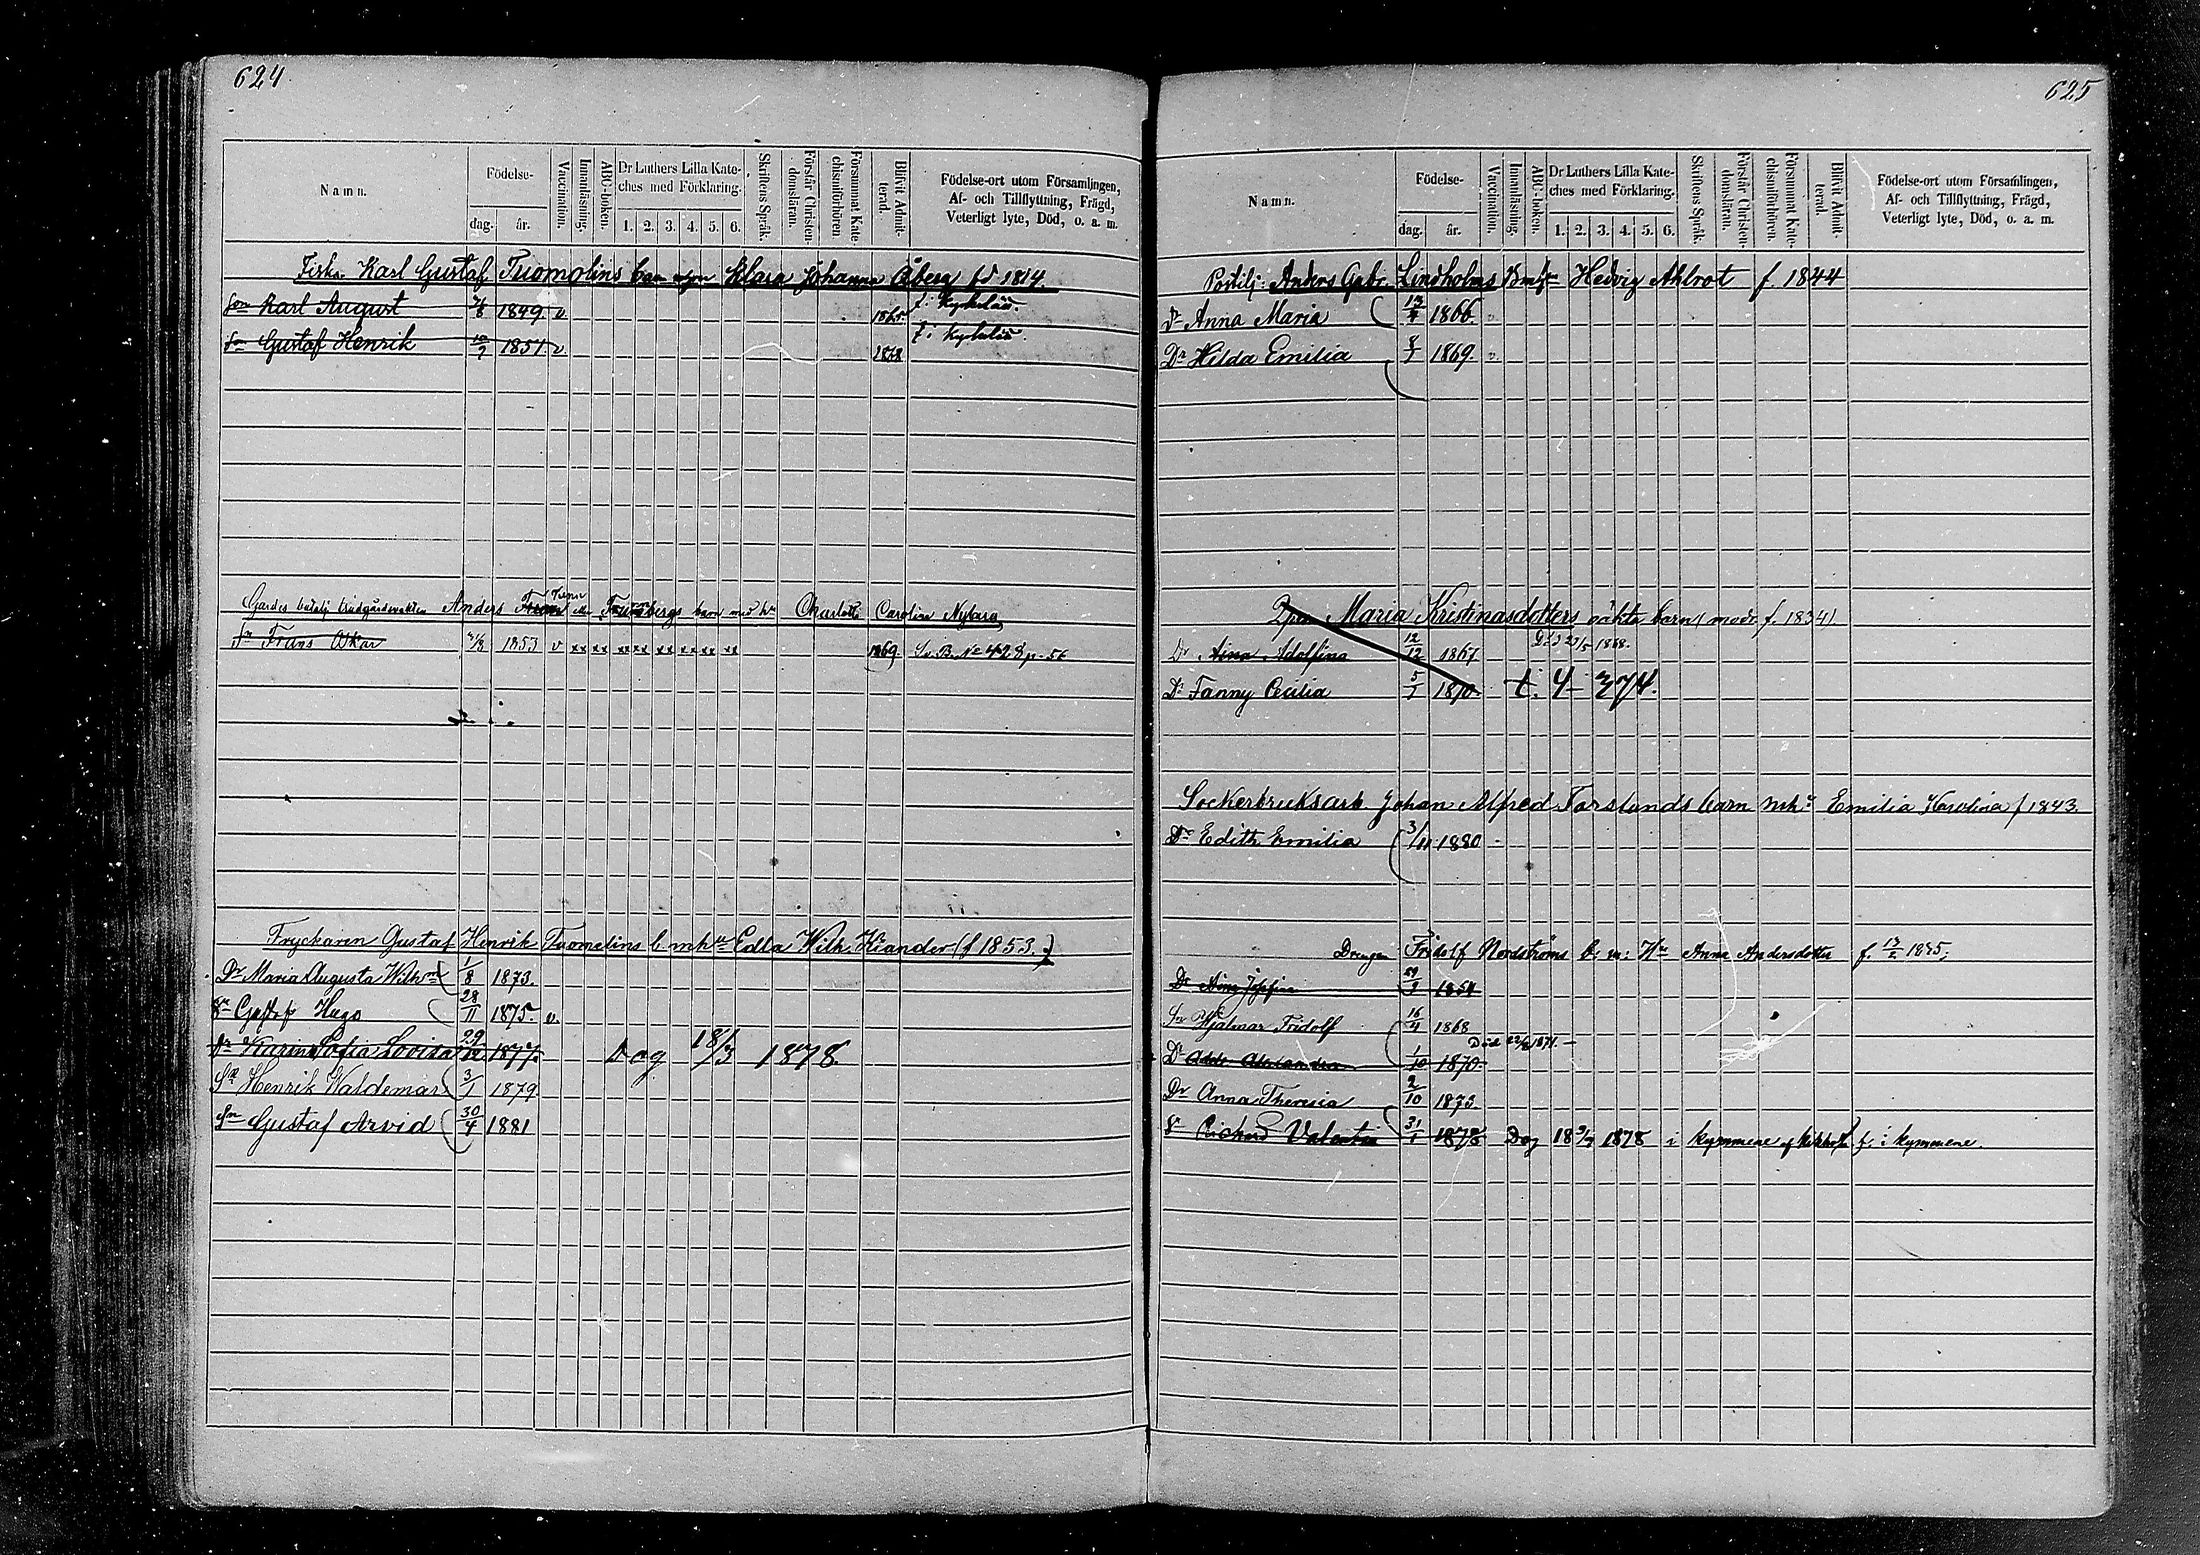 624
Namn.
Födelse-
dag.
år.
Vaccination.
Innanläsning.
ABC-boken.
Dr Luthers Lilla Kate-
ches med Förklaring.
1. 2. 3. 4. 5. 6.
Skriftens Språk.
Förstår Christen-
domsläran.
Försummat Kate-
chismiförhören
Blifvit Admit-
terad.
Födelse-ort utom Församlingen,
Af- och Tillflyttning, Frägd,
Veterligt lyte, Död, o. a. m.
Fisk. Karl Gustaf Tuomolins barn Klara Johanna Åberg f. 1814.
Sn Karl August 1849 v 1865
Sn Gustaf Henrik 1851 v 1878
Gardes Anders Trombergs barn med hu Charlotta Carolina
Sn Frans Oskar 1853 v xx xx xx xx xx xx xx xx 1869 S. B. No 428 p. 56
Tryckaren Gustaf Henrik Tuomelins b. mhu Edla Wilh. Kiander (f 1853.)
Dr Maria Augusta Wilhma 1/8 1873.
Sn Gustaf Hugo 28/11 1875. v.
Dr Karin Sofia Lovisa 29/12 1877. Dog 18 1/3 1878
Sn Henrik Waldemar 3/1 1879.
Sn Gustaf Arvid 30/4 1881
625
Namn.
Födelse-
dag.
år.
Vaccination.
Innanläsning.
ABC-boken.
Dr Luthers Lilla Kate-
ches med Förklaring.
1. 2. 3. 4. 5. 6.
Skriftens Språk.
Förstår Christen-
domsläran.
Försummat Kate-
chismiförhören.
Blifvit Admit-
terad.
Födelse-ort utom Församlingen,
Af- och Tillflyttning, Frägd,
Veterligt lyte, Död, o. a. m.
Postilj: Anders Gabr. Lindholms Hedvig Ahlrot f. 1844
Dr Anna Maria 1866.
Dr Hilda Emilia 1869. v.
Maria Kristinasdotters oäkta barn (modr f. 1834).
Dr Aina Adolfina 12/12 1867
Dr Fanny Cecilia 5/1 1870 t. 4-374.
Sockerbruksarb Johan Alfred Forslunds barn mhu Emilia Karolina f 1843
Dr Edith Emilia 3/11 1880
Drengen Fridolf Nordströms b. m: Hu Anna Andersdotter
Dr
Sn Hjalmar Fridolf 16/4 1868
Dr Alexandra 1/10 1870
Dr Anna Theresia 2/10 1873.
Sn Richard Valentin 31/1 1878 Dog 1878 i kymmene f: i kymmene.